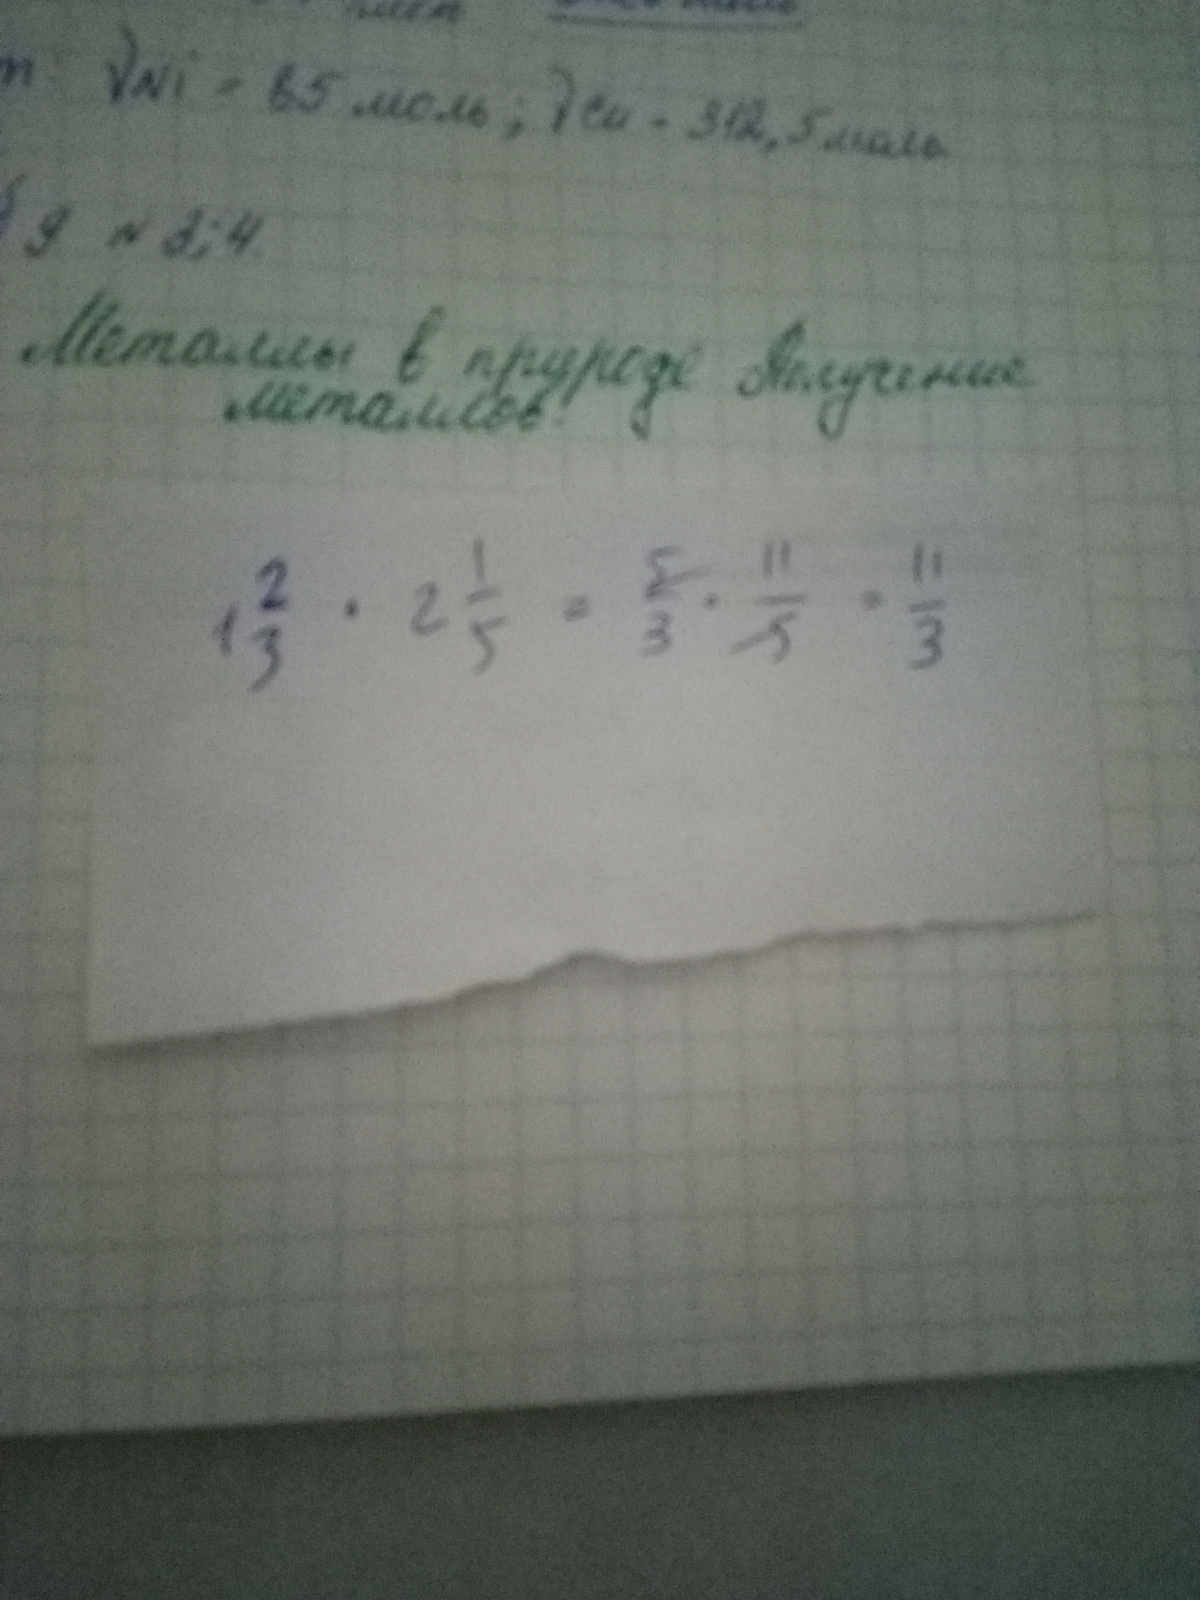 νNi = 85 моль; νCu = 312,5 моль
№ 3; 4.
Металлы в природе Получение
металлов.
1 2/3 · 2 1/5 = 5/3 · 11/5 = 11/3